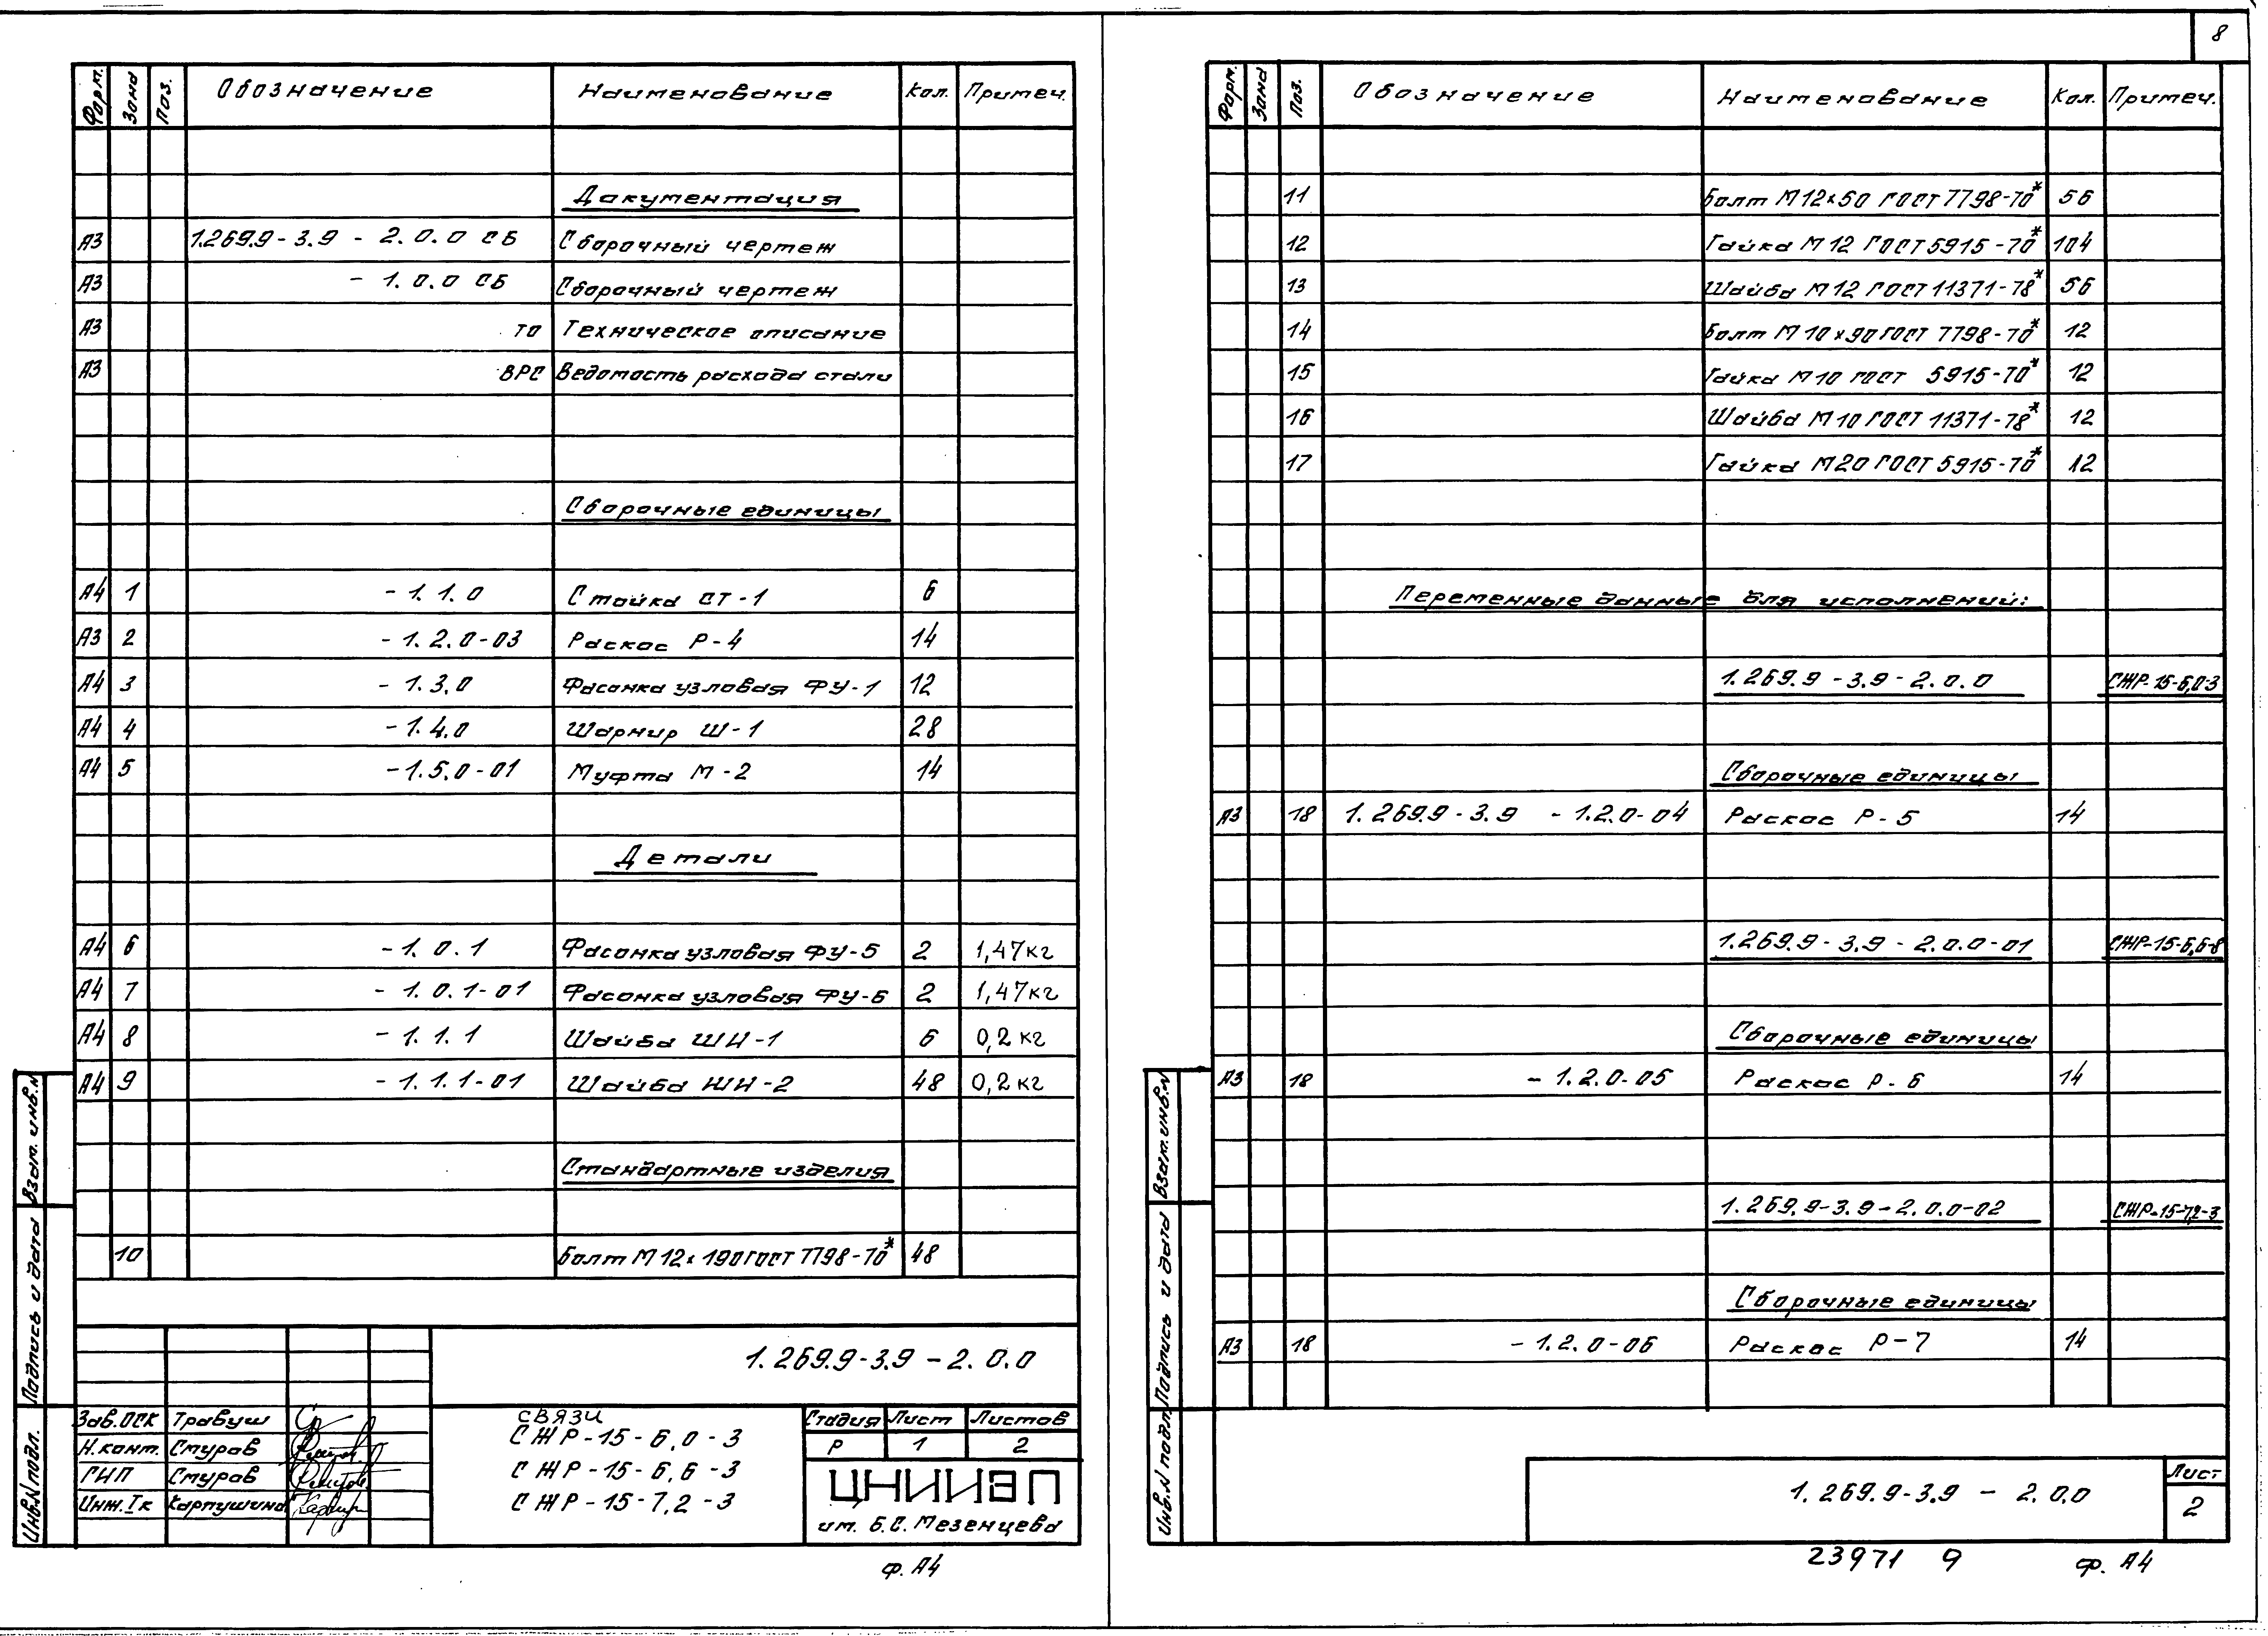 8
Форм. Зона Поз. Обозначение Наименование Кол. Примеч.
Документация
А3 1.269.9-3.9 - 2.0.0 СБ Сборочный чертеж
А3 - 1.0.0 СБ Сборочный чертеж
А3 ТО Техническое описание
А3 ВРС Ведомость расхода стали
Сборочные единицы
А4 1 - 1.1.0 Стойка СТ-1 6
А3 2 - 1.2.0-03 Раскос Р-4 14
А4 3 - 1.3.0 Фасонка узловая ФУ-1 12
А4 4 - 1.4.0 Шарнир Ш-1 28
А4 5 - 1.5.0-01 Муфта М-2 14
Детали
А4 6 - 1.0.1 Фасонка узловая ФУ-5 2 1,47кг
А4 7 - 1.0.1-01 Фасонка узловая ФУ-6 2 1,47кг
А4 8 - 1.1.1 Шайба ШН-1 6 0,2 кг
А4 9 - 1.1.1-01 Шайба ШН-2 48 0,2 кг
Стандартные изделия
10 Болт М12х190 ГОСТ 7798-70* 48
1.269.9-3.9 - 2.0.0
Зав.ОСК Травуш
Н.конт. Стуров
ГИП Стуров
Инж.Iк Карпушина
СВЯЗИ
СЖР-15-6,0-3
СЖР-15-6,6-3
СЖР-15-7,2-3
Стадия Лист Листов
Р 1 2
ЦНИИЭП
им. Б.С. Мезенцева
Взам. инв.N
Подпись и дата
Инв.N подл.
ф. А4
Форм. Зона Поз. Обозначение Наименование Кол. Примеч.
11 Болт М12х50 ГОСТ 7798-70* 56
12 Гайка М12 ГОСТ 5915-70* 104
13 Шайба М12 ГОСТ 11371-78* 56
14 Болт М10х90 ГОСТ 7798-70* 12
15 Гайка М10 ГОСТ 5915-70* 12
16 Шайба М10 ГОСТ 11371-78* 12
17 Гайка М20 ГОСТ 5915-70* 12
Переменные данные для исполнений:
1.269.9-3.9-2.0.0 СЖР-15-6,0-3
Сборочные единицы
А3 18 1.269.9-3.9 - 1.2.0-04 Раскос Р-5 14
1.269.9-3.9-2.0.0-01 СЖР-15-6,6-8
Сборочные единицы
А3 18 - 1.2.0-05 Раскос Р-6 14
1.269.9-3.9-2.0.0-02 СЖР-15-7,2-3
Сборочные единицы
А3 18 - 1.2.0-06 Раскос Р-7 14
Взам.инв.N
Подпись и дата
Инв.N подл.
1.269.9-3.9 - 2.0.0
Лист
2
23971 9
ф. А4